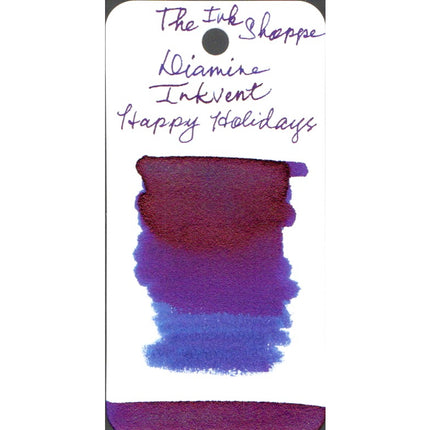 The Ink Shoppe
Diamine
Inkvent
Happy Holidays